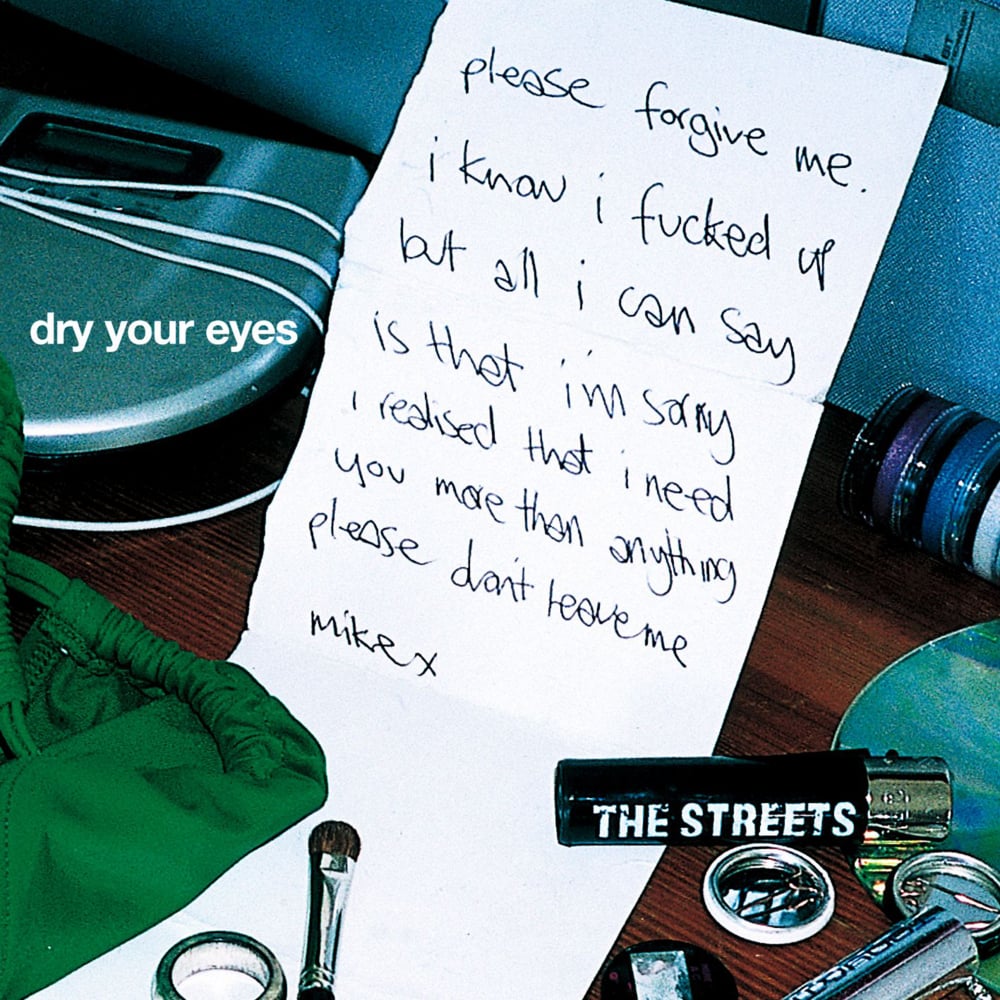 please forgive me.
i know i fucked up
but all i can say
is that i'm sorry
i realised that i need
you more than anything
please don't leave me
mike x
dry your eyes
THE STREETS